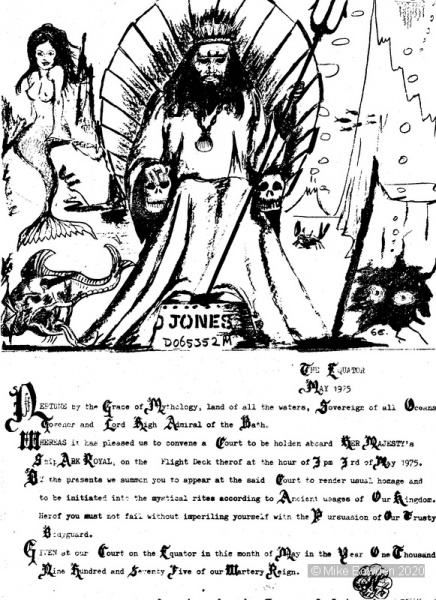 D JONES
D065352M
GC.
THE EQUATOR
MAY 1975
NEPTUNE by the Grace of Mythology, land of all the waters, Sovereign of all Oceans
Governor and Lord High Admiral of the Bath.
WHEREAS it has pleased us to convene a Court to be holden aboard HER MAJESTY's
Ship ARK ROYAL, on the Flight Deck therof at the hour of 3 pm 3rd of May 1975.
By the presents we summon you to appear at the said Court to render usual homage and
to be initiated into the mystical rites according to Ancient usages of Our Kingdom.
Herof you must not fail without imperiling yourself with the Pursuasion of Our Trusty
Bodyguard.
GIVEN at our Court on the Equator in this month of May in the Year One Thousand
Nine Hundred and Seventy Five of our Watery Reign.
© Mike Bowden 2020